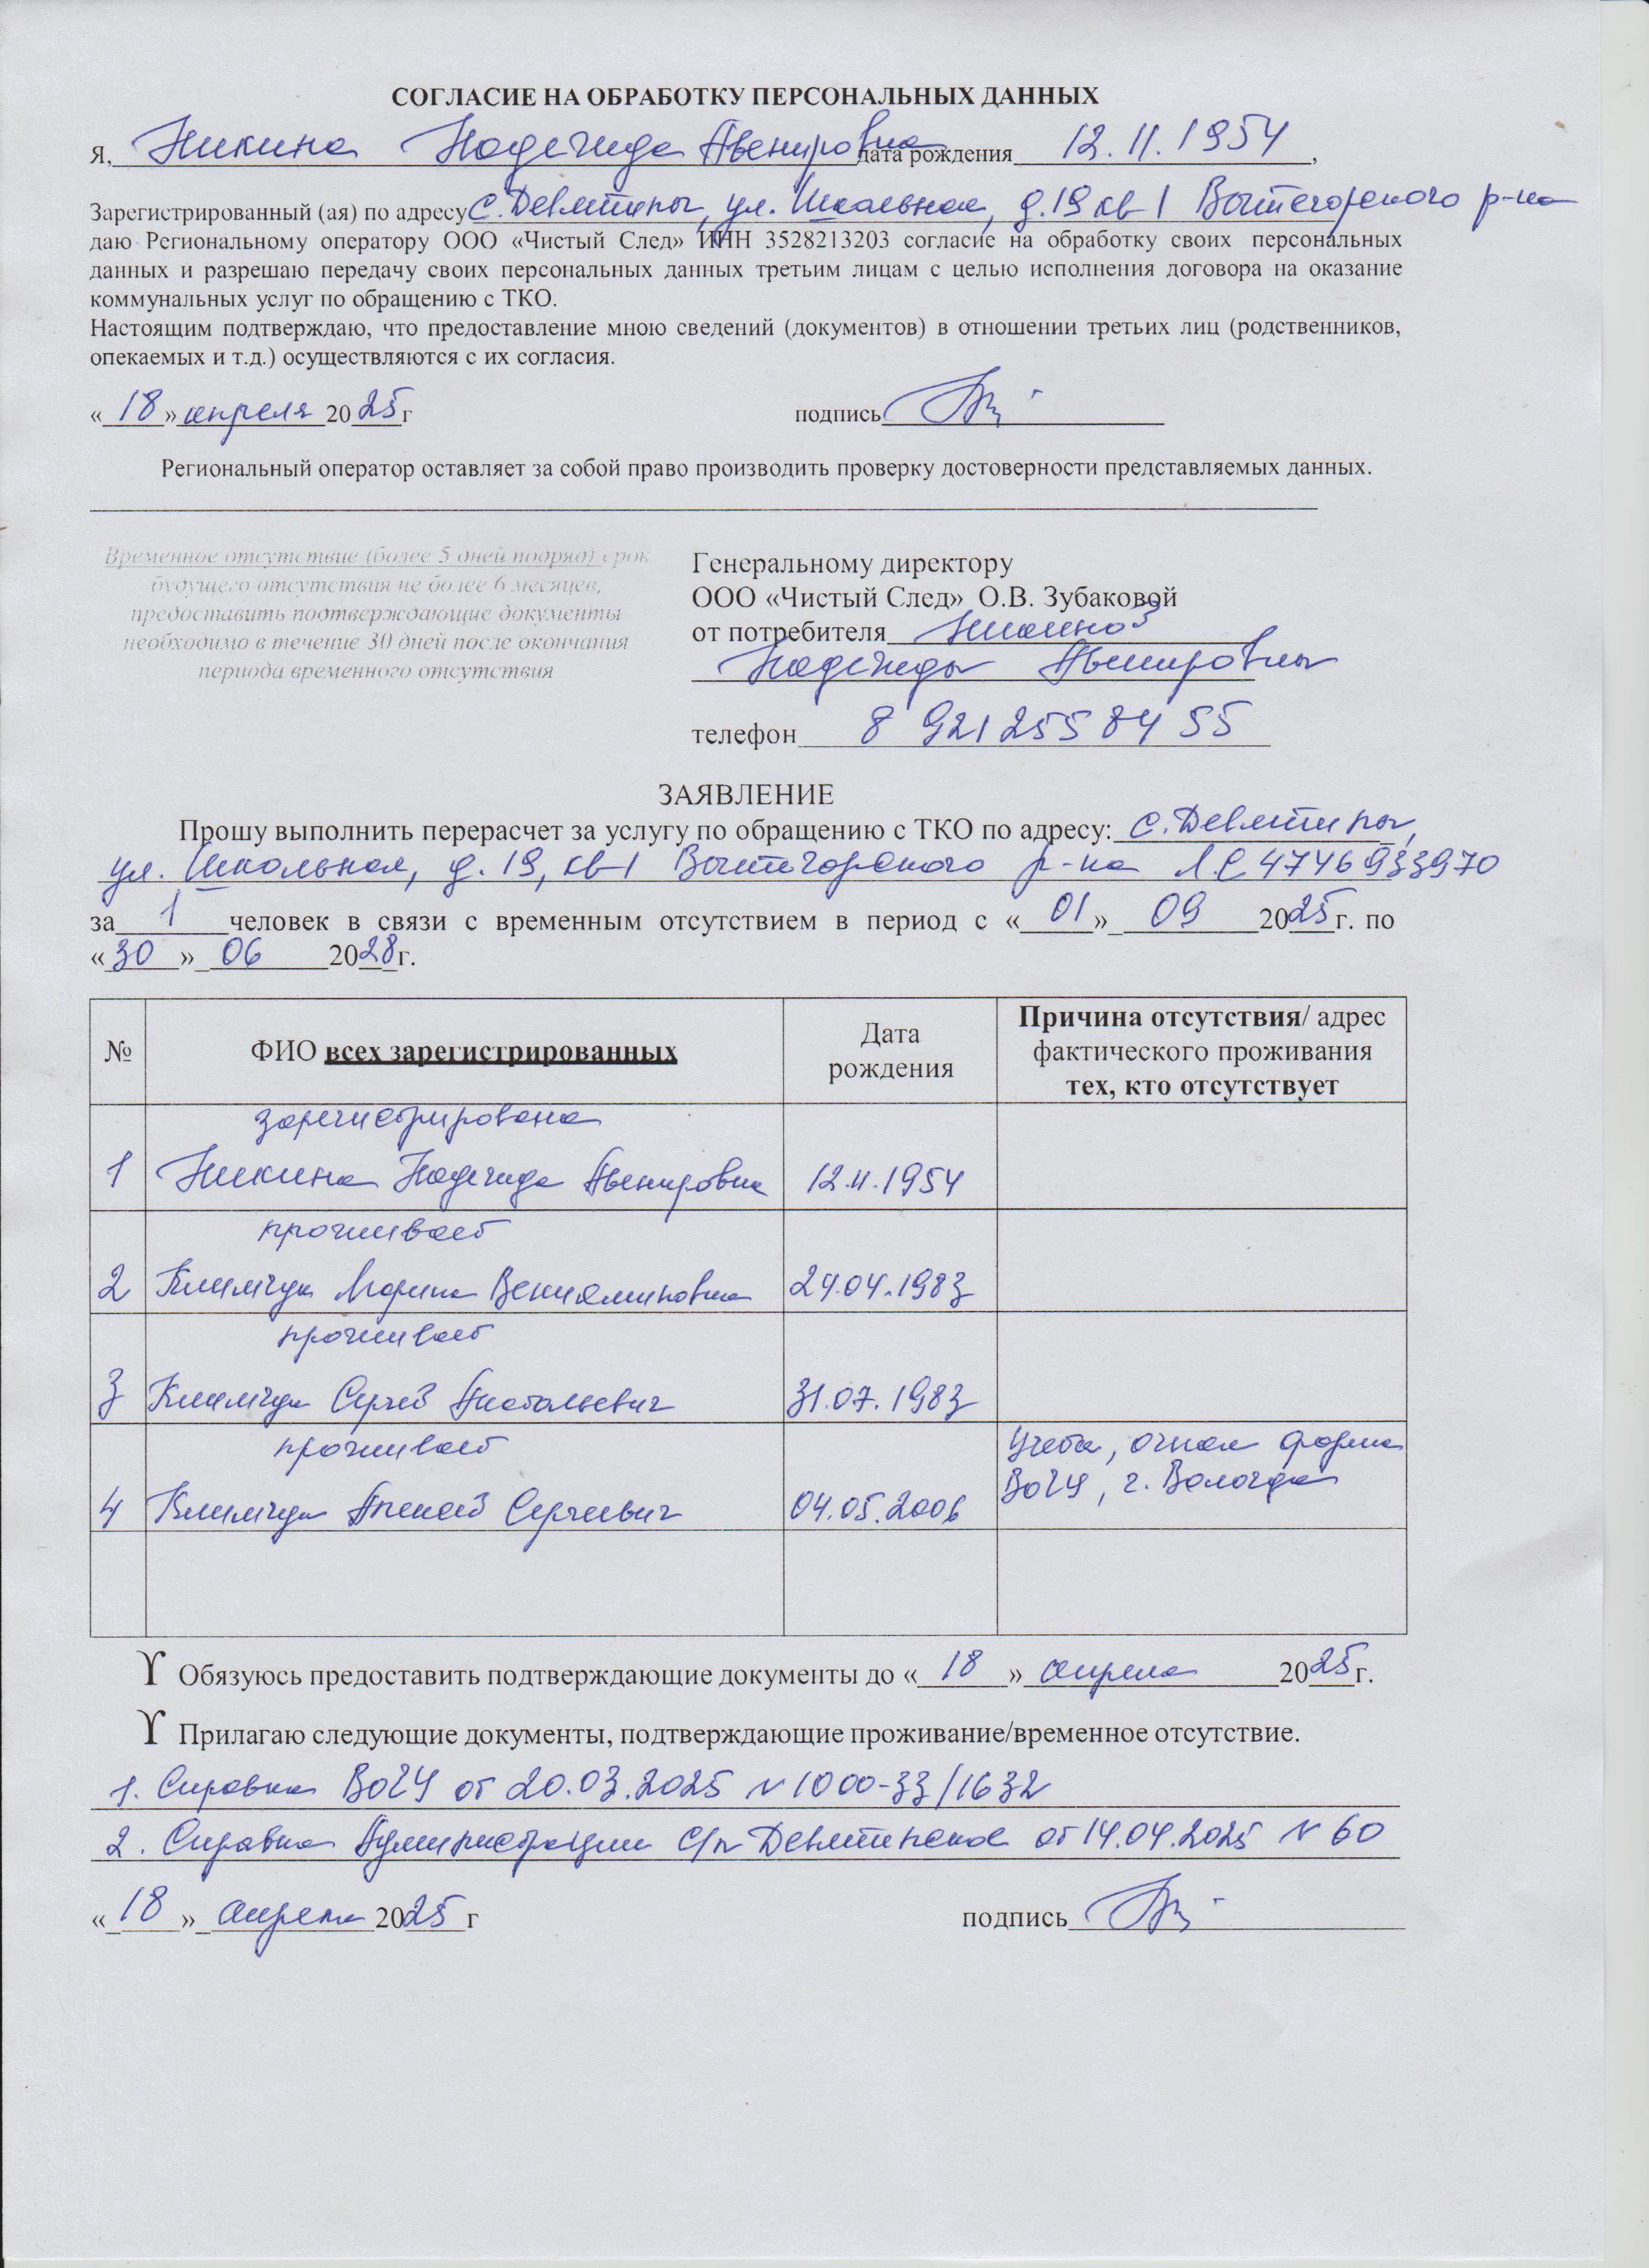 СОГЛАСИЕ НА ОБРАБОТКУ ПЕРСОНАЛЬНЫХ ДАННЫХ
Я, Никина Надежда Авенировна дата рождения 12.11.1954,
Зарегистрированный (ая) по адресу с. Девятины, ул. Школьная, д.19 кв 1 Вытегорского р-на
даю Региональному оператору ООО «Чистый След» ИНН 3528213203 согласие на обработку своих персональных
данных и разрешаю передачу своих персональных данных третьим лицам с целью исполнения договора на оказание
коммунальных услуг по обращению с ТКО.
Настоящим подтверждаю, что предоставление мною сведений (документов) в отношении третьих лиц (родственников,
опекаемых и т.д.) осуществляются с их согласия.
«18» апреля 2025г подпись
Региональный оператор оставляет за собой право производить проверку достоверности представляемых данных.
Временное отсутствие (более 5 дней подряд) срок
будущего отсутствия не более 6 месяцев,
предоставить подтверждающие документы
необходимо в течение 30 дней после окончания
периода временного отсутствия
Генеральному директору
ООО «Чистый След» О.В. Зубаковой
от потребителя Никиной
Надежды Авенировны
телефон 8 921 255 84 55
ЗАЯВЛЕНИЕ
Прошу выполнить перерасчет за услугу по обращению с ТКО по адресу: с. Девятины,
ул. Школьная, д. 19, кв 1 Вытегорского р-на Л.С 4746933970
за 1 человек в связи с временным отсутствием в период с «01» 09 2025г. по
«30» 06 2028г.
№ ФИО всех зарегистрированных Дата рождения Причина отсутствия/ адрес фактического проживания тех, кто отсутствует
зарегистрирована
1 Никина Надежда Авенировна 12.11.1954
проживает
2 Климчук Марина Вениаминовна 24.04.1983
проживает
3 Климчук Сергей Анатольевич 31.07.1983
проживает
4 Климчук Алексей Сергеевич 04.05.2006 Учеба, очная форма ВоГУ, г. Вологда
Обязуюсь предоставить подтверждающие документы до «18» апреля 2025г.
Прилагаю следующие документы, подтверждающие проживание/временное отсутствие.
1. Справка ВоГУ от 20.03.2025 N 1000-33/1632
2. Справка Администрации с/п Девятинское от 14.04.2025 N 60
«18» апреля 2025г подпись